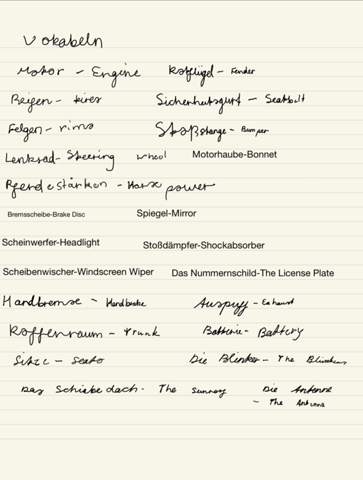 Vokabeln
Motor - Engine Kotflügel - Fender
Reifen - tires Sicherheitsgurt - Seatbelt
Felgen - rims Stoßstange - Bumper
Lenkrad - Steering wheel Motorhaube-Bonnet
Pferdestärken - Horse power
Bremsscheibe-Brake Disc Spiegel-Mirror
Scheinwerfer-Headlight Stoßdämpfer-Shockabsorber
Scheibenwischer-Windscreen Wiper Das Nummernschild-The License Plate
Handbremse - Handbrake Auspuff - Exhaust
Koffenraum - Trunk Batterie - Battery
Sitze - Seats Die Blinker - The Blinkers
Das Schiebedach - The Sunroof Die Antenne
- The Antenna